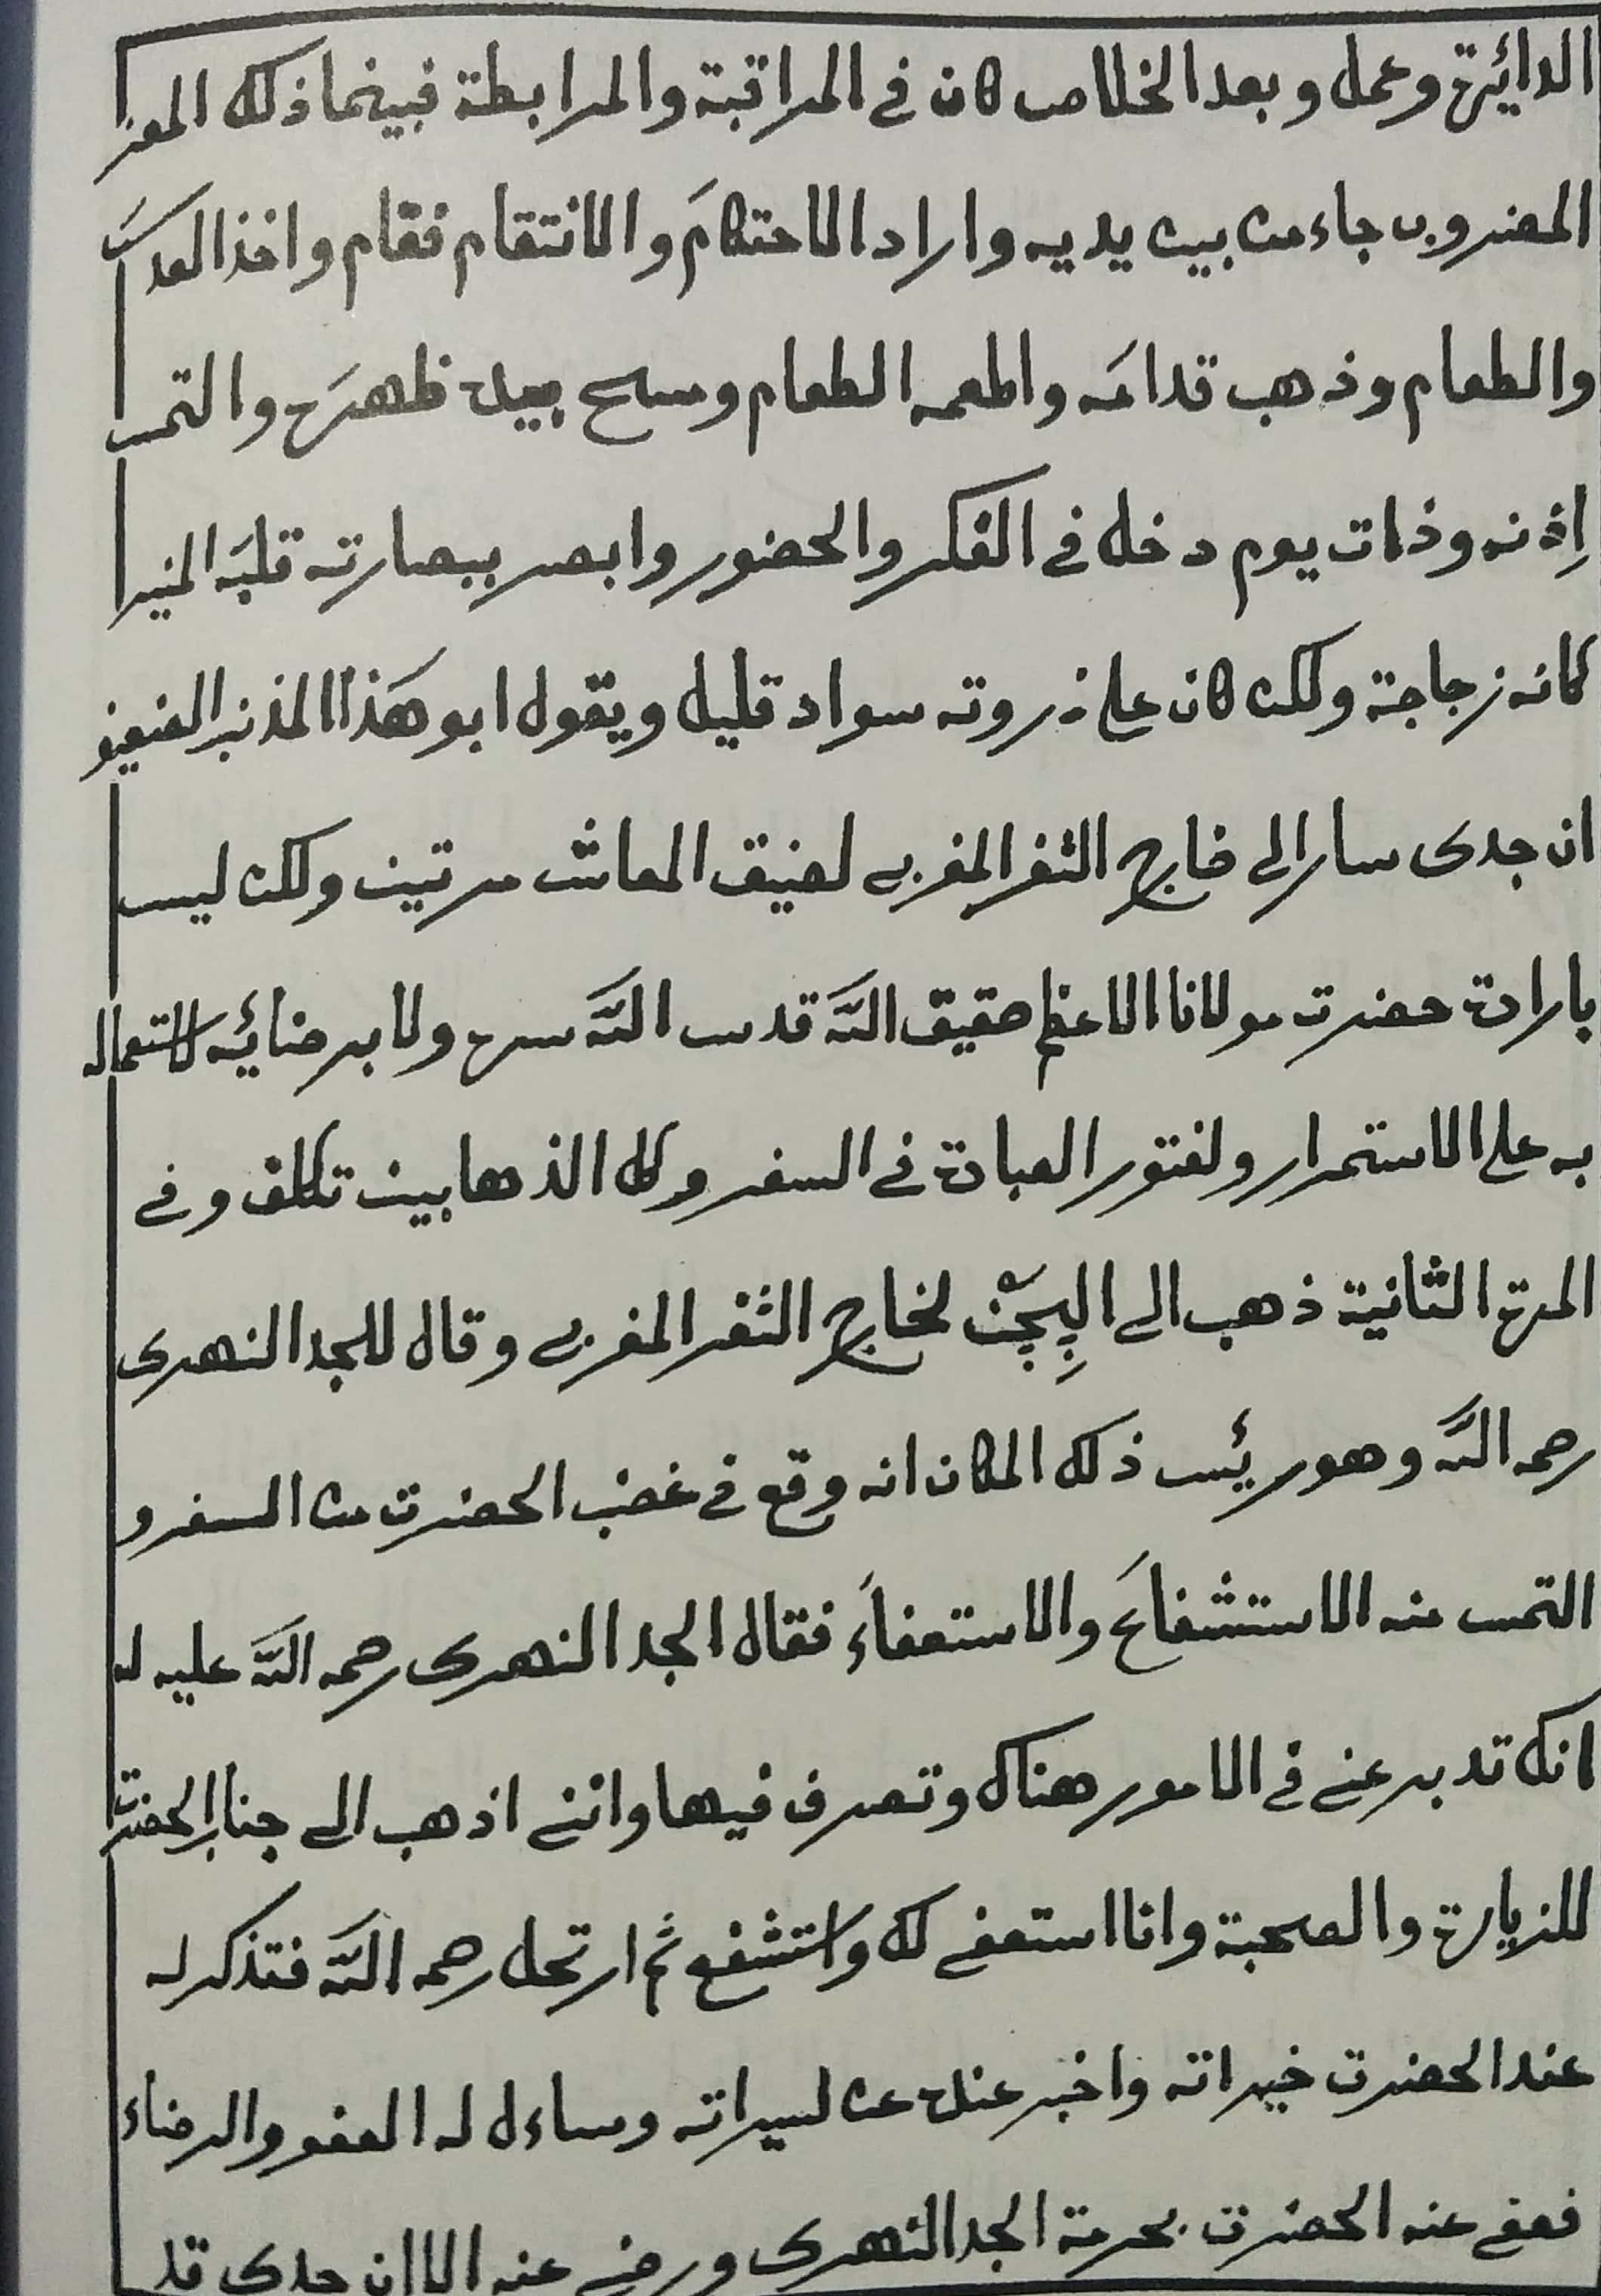 الدائرة وعمل وبعد الخلاص كان في المراقبة والمرابطة فبينما ذلك المعز
المضروب جاء من بين يديه واراد الاحتكامَ والانتقام فقام واخذ العدسَ
والطعام وذهب قدامَه واطعمه الطعام ومسح بيده ظهرَه والتمس
اِذنه وذات يوم دخل في الفكر والحضور وابصر ببصارته قلبَه المنير
كانه زجاجة ولكن كان على ذروته سواد قليل ويقول ابو هَذا المذنب الضعيف
ان جدى سار الى خارج الثغر المغربي لضيق المعاش مرتين ولكن ليس
بارادة حضرت مولانا الاعظم حقيق اللَّه قدس اللَّه سره ولا برضائه لاشتعاله
به على الاستمرار ولفتور العبادة في السفر وكل الذهابين تكلف وفي
المرة الثانية ذهب الى الپِچَن لخارج الثغر المغربي وقال للجد النهرى
رحمه اللَّه وهو رئيس ذلك المكان انه وقع في غضب الحضرت من السفر و
التمس منه الاستشفاعَ والاستعفاءَ فقال الجد النهرى رحمه اللَّه عليه له
انك تدبر عني في الامور هناك وتصرف فيها وانني اذهب الى جناب الحضرت
للزيارة والصحبة وانا استعفي لك واستشفع ثم ارتحل رحمه اللَّه فتذكر له
عند الحضرت خيراته واخبر عنده عن لسيراته وساءل له العفو والرضاء
فعفي عنه الحضرت بحرمة الجد النهرى ورضي عنه الا ان جدى قد